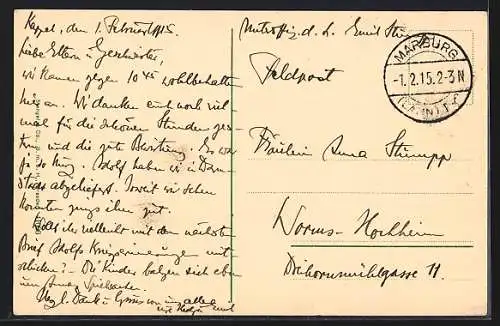 Kappel, den 1. Februar 1915.
Liebe Eltern u. Geschwister,
wir kamen gegen 10 45 wohlbehalten
hier an. Wir danken euch noch viel
mal für die schönen Stunden ges-
tern und die gute Bewirtung. Es war
ja so kurz. Adolf haben wir in Darm-
stadt abgeliefert. Soweit wir sehen
konnten gings ihm gut.
Könnt ihr vielleicht mit dem nächsten
Brief Adolfs Kriegserinnerungen mit-
schicken? Die Kinder balgen sich eben
um Spielsachen.
Herzl. Dank u. Grüsse von uns allen
Emil
Unteroffiz. d. L. Emil
Feldpost
MARBURG
-1.2.15.2-3N
Fräulein Anna Stumpp
Worms-Hochheim
Dreihornmühlgasse 11.